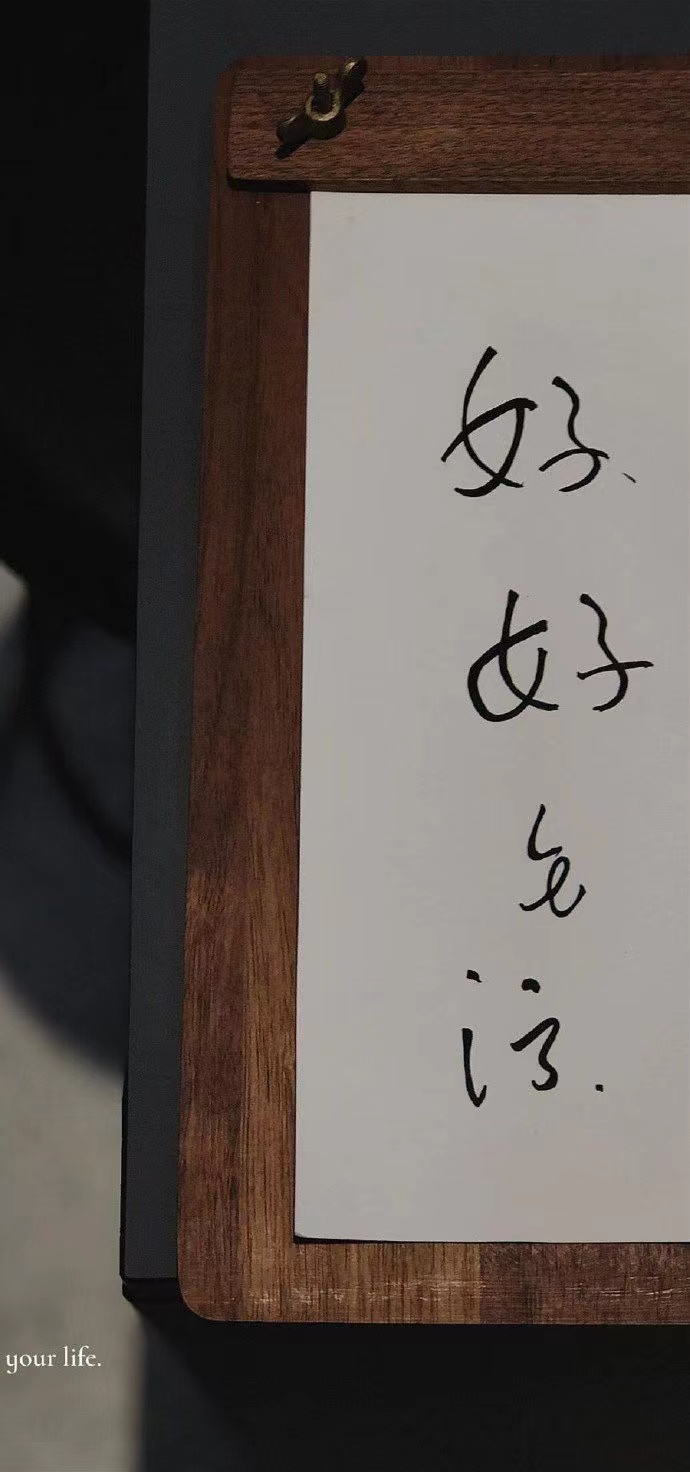 好好生活
your life.